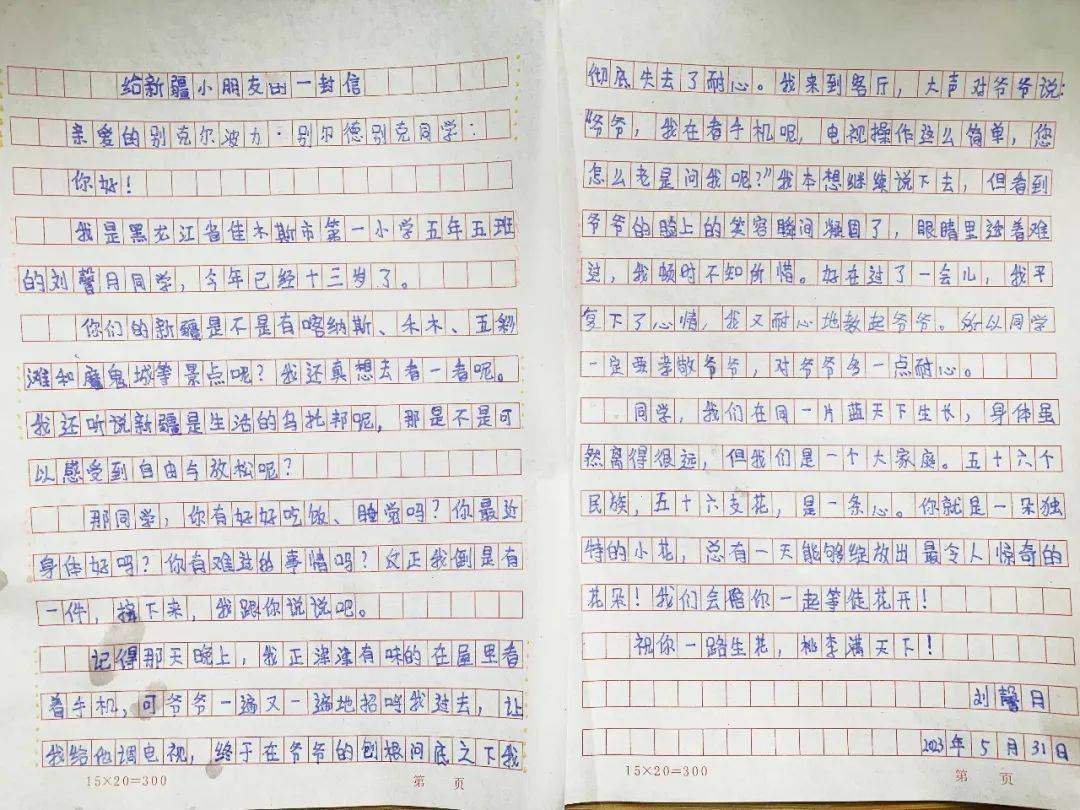 给新疆小朋友的一封信
亲爱的别克尔波力·别尔德别克同学:
你好!
我是黑龙江省佳木斯市第一小学五年五班
的刘馨月同学,今年已经十三岁了。
你们的新疆是不是有喀纳斯、禾木、五彩
滩和魔鬼城等景点呢?我还真想去看一看呢。
我还听说新疆是生活的乌托邦呢,那是不是可
以感受到自由与放松呢?
那同学,你有好好吃饭、睡觉吗?你最近
身体好吗?你有难过的事情吗?反正我倒是有
一件,接下来,我跟你说说吧。
记得那天晚上,我正津津有味的在屋里看
着手机,可爷爷一遍又一遍地招呼我过去,让
我给他调电视,终于在爷爷的刨根问底之下我
15×20=300 第 页
彻底失去了耐心。我来到客厅,大声对爷爷说:
“爷爷,我在看手机呢,电视操作这么简单,您
怎么老是问我呢?”我本想继续说下去,但看到
爷爷的脸上的笑容瞬间凝固了,眼睛里透着难
过,我顿时不知所惜。好在过了一会儿,我平
复下了心情,我又耐心地教起爷爷。所以同学
一定要孝敬爷爷,对爷爷多一点耐心。
同学,我们在同一片蓝天下生长,身体虽
然离得很远,但我们是一个大家庭。五十六个
民族,五十六支花,是一条心。你就是一朵独
特的小花,总有一天能够绽放出最令人惊奇的
花朵!我们会陪你一起等待花开!
祝你一路生花,桃李满天下!
刘馨月
2023年5月31日
15×20=300 第 页